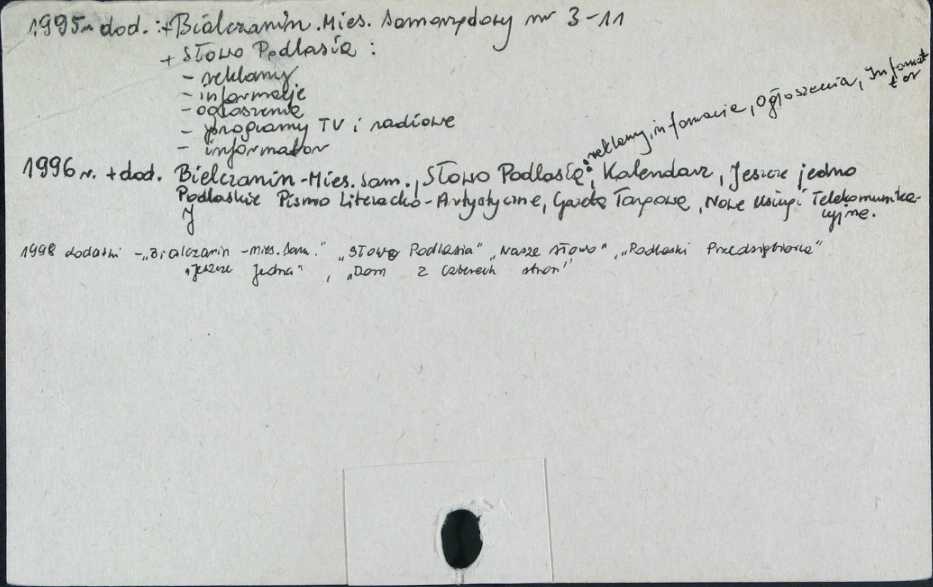 1995r. dod. : + Bialczanin. Mies. Samorządowy nr 3-11
+ Słowo Podlasia :
- reklamy
- informacje
- ogłoszenia
- programy TV i radiowe
- informator
1996 r. + dod. Bielczanin - Mies. Sam., Słowo Podlasia: reklamy, informacje, Ogłoszenia, Informator, Kalendarz, Jeszcze jedno
Podlaskie Pismo Literacko - Artystyczne, Gazeta Targowa, Nowe Usługi Telekomunika-
cyjne.
1998 dodatki - „Bialczanin - mies. Sam." „Słowo Podlasia" „Nasze słowo", „Podlaski Przedsiębiorca"
„Jeszcze jedna", „Dom z czterech stron"